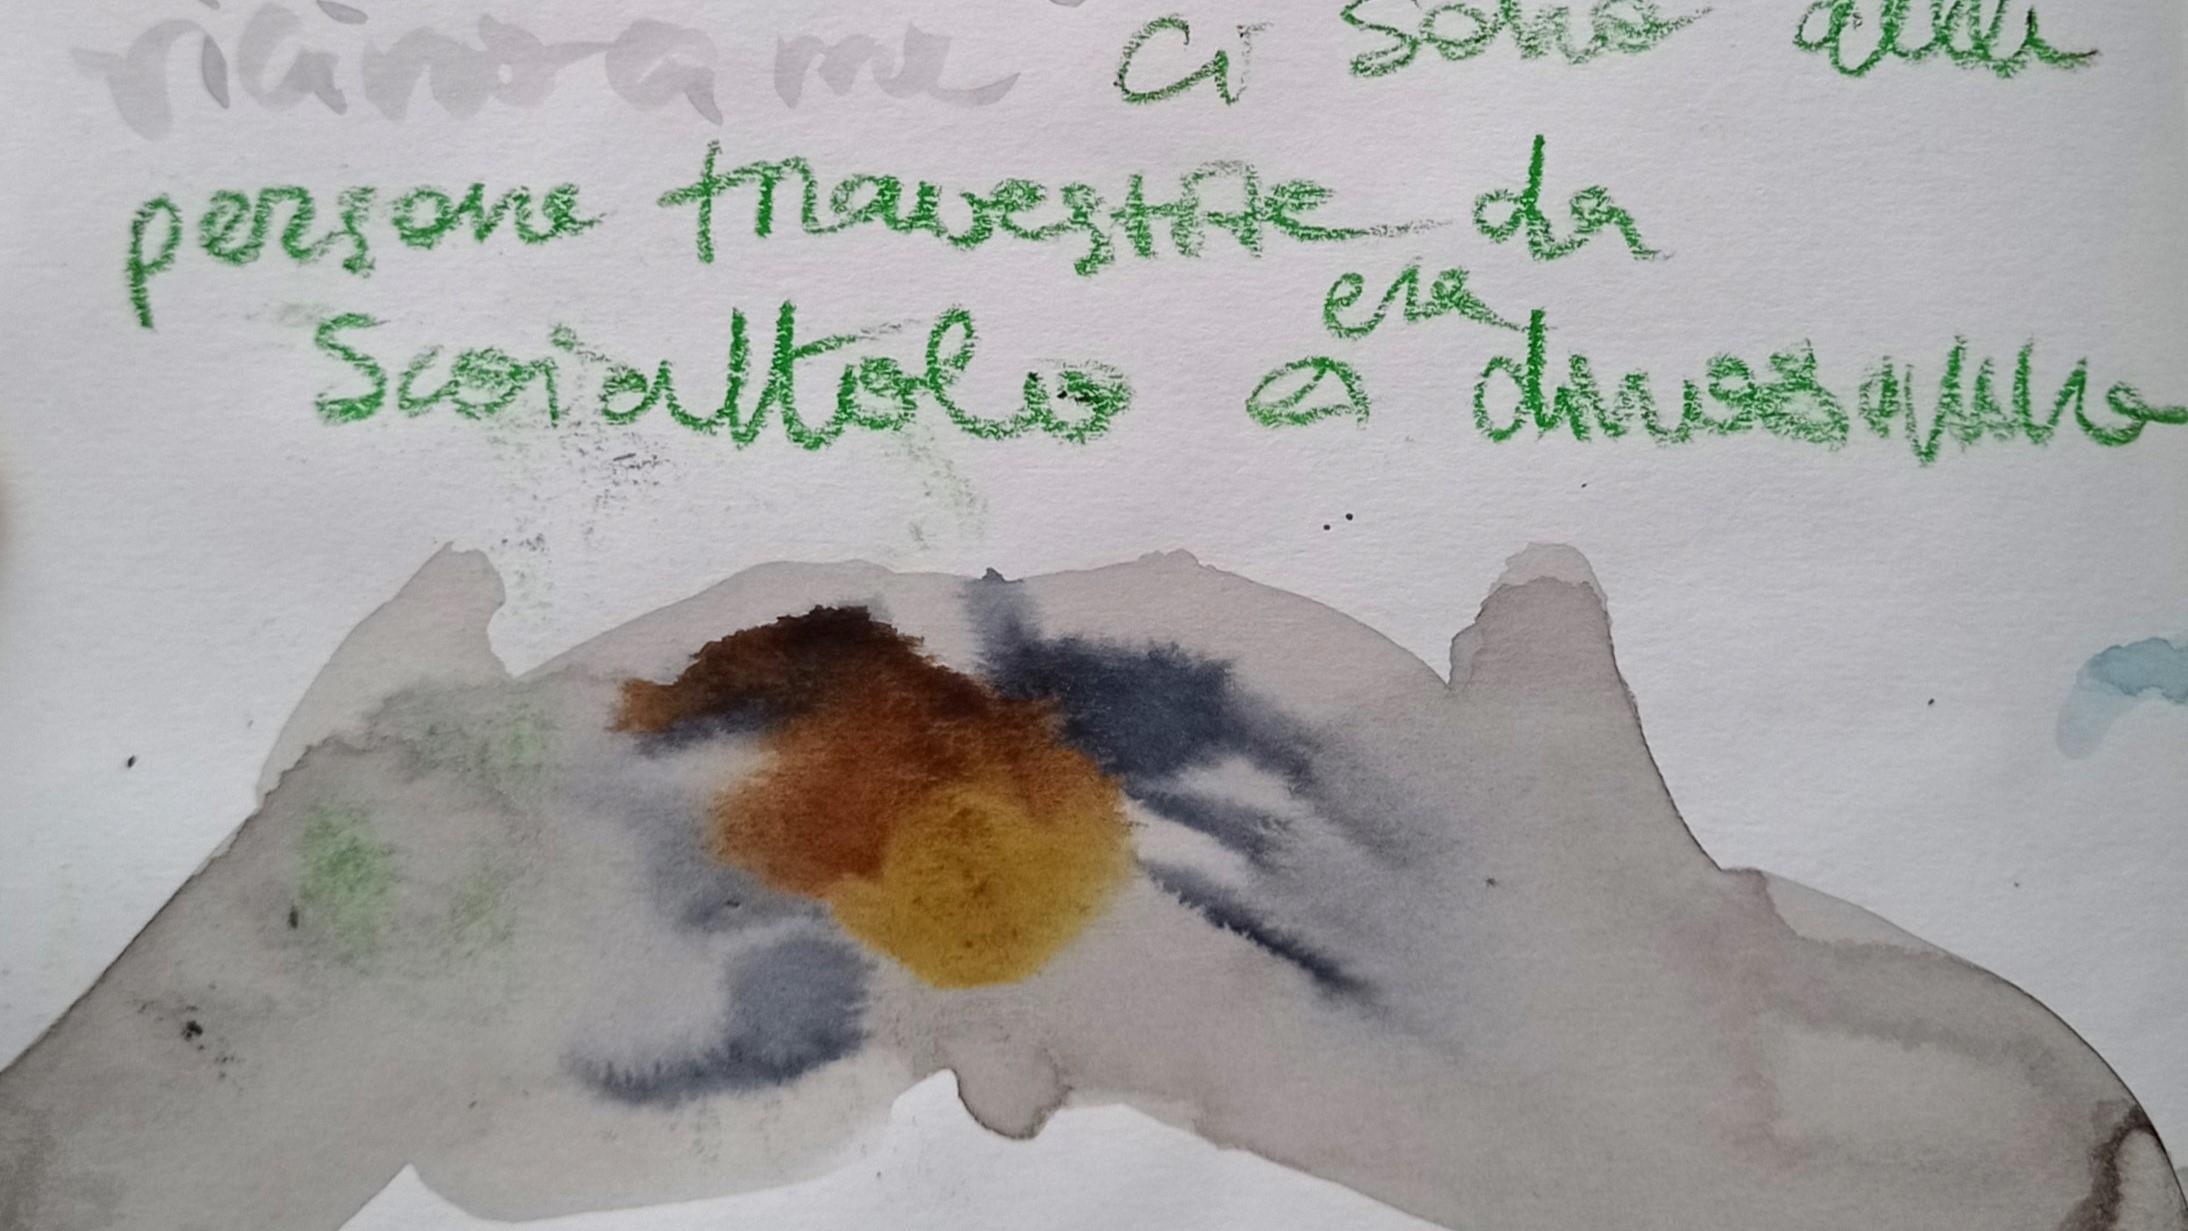 vicino a me Ci sono altre
persone travestite da
era
Scoiattolo e dinosauro